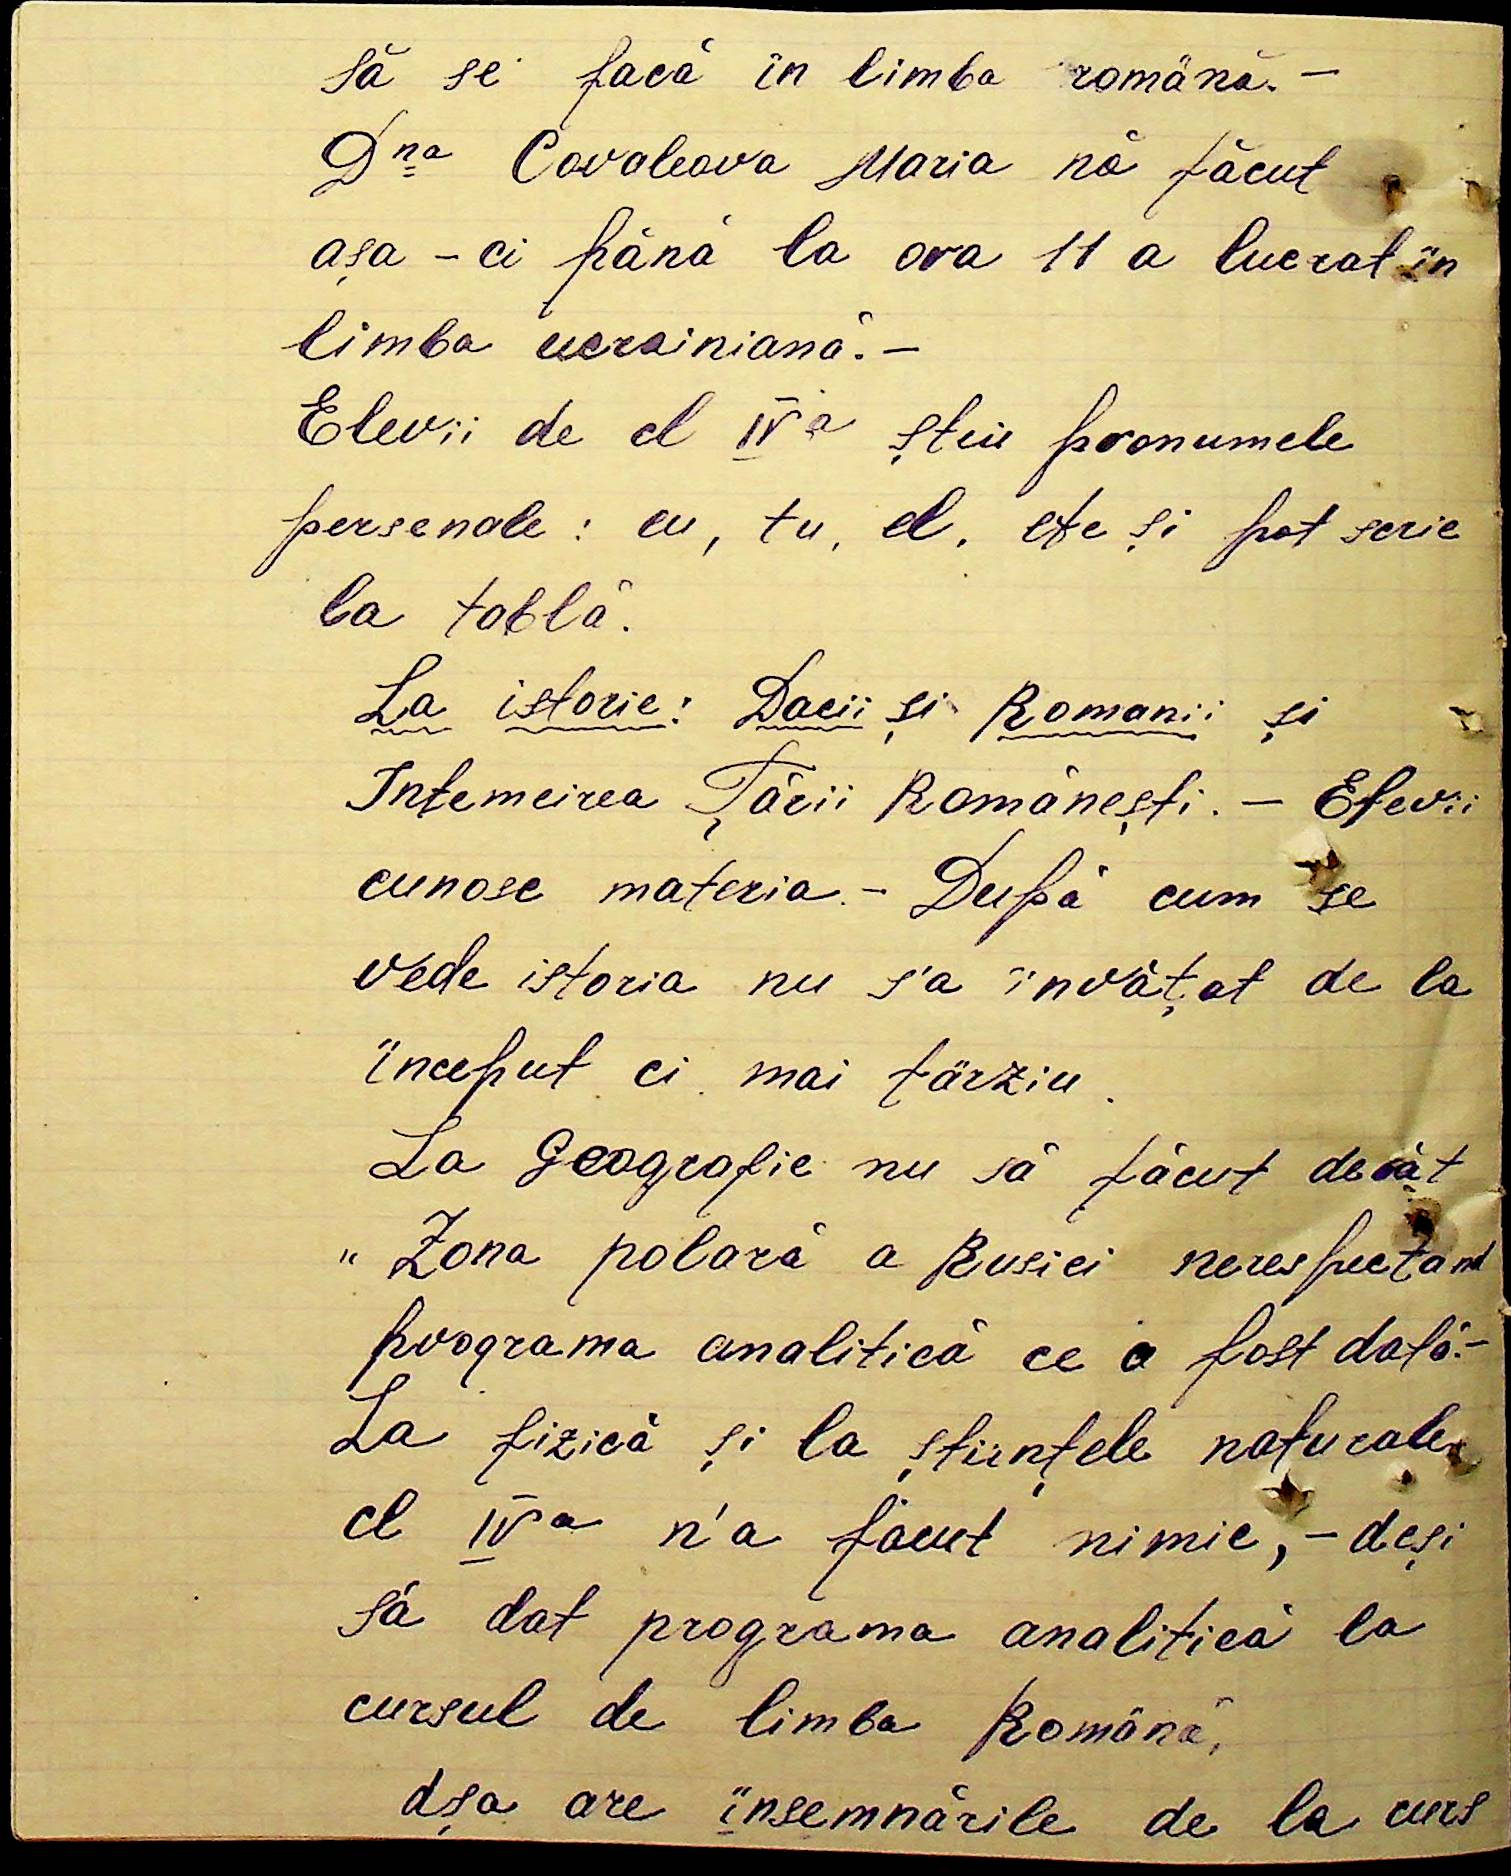 să se facă în limba română. –
Dna Covaleova Maria nă făcut
așa – ci până la ora 11 a lucrat în
limba ucrainiană. –
Elevii de cl IVa știu pronumele
personale : eu, tu, el, etc și pot scrie
la tablă.
La istorie: Dacii și Romanii și
Intemeirea Țării Românești. – Elevii
cunosc materia. – După cum se
vede istoria nu s'a învățat de la
început ci mai târziu.
La Geografie nu să făcut decât
" Zona polară a Rusiei nerespectand
programa analitică ce a fost dată. –
La fizică și la științele naturale
cl IVa n'a făcut nimic, – deși
să dat programa analitică la
cursul de limba Română,
dșa are însemnările de la curs